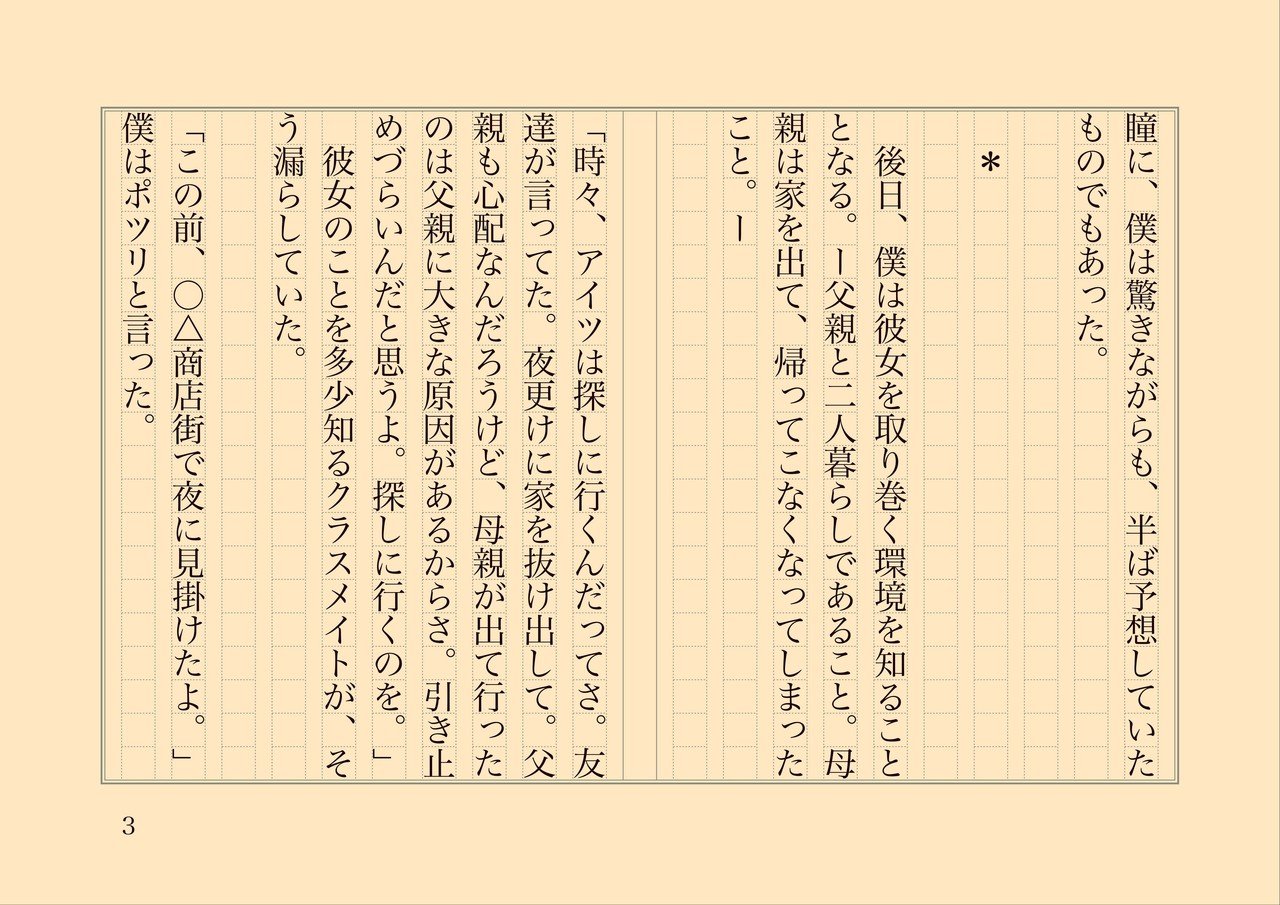 瞳に、僕は驚きながらも、半ば予想していた
ものでもあった。
＊
　後日、僕は彼女を取り巻く環境を知ること
となる。ー父親と二人暮らしであること。母
親は家を出て、帰ってこなくなってしまった
こと。ー
「時々、アイツは探しに行くんだってさ。友
達が言ってた。夜更けに家を抜け出して。父
親も心配なんだろうけど、母親が出て行った
のは父親に大きな原因があるからさ。引き止
めづらいんだと思うよ。探しに行くのを。」
　彼女のことを多少知るクラスメイトが、そ
う漏らしていた。
「この前、○△商店街で夜に見掛けたよ。」
僕はポツリと言った。
3